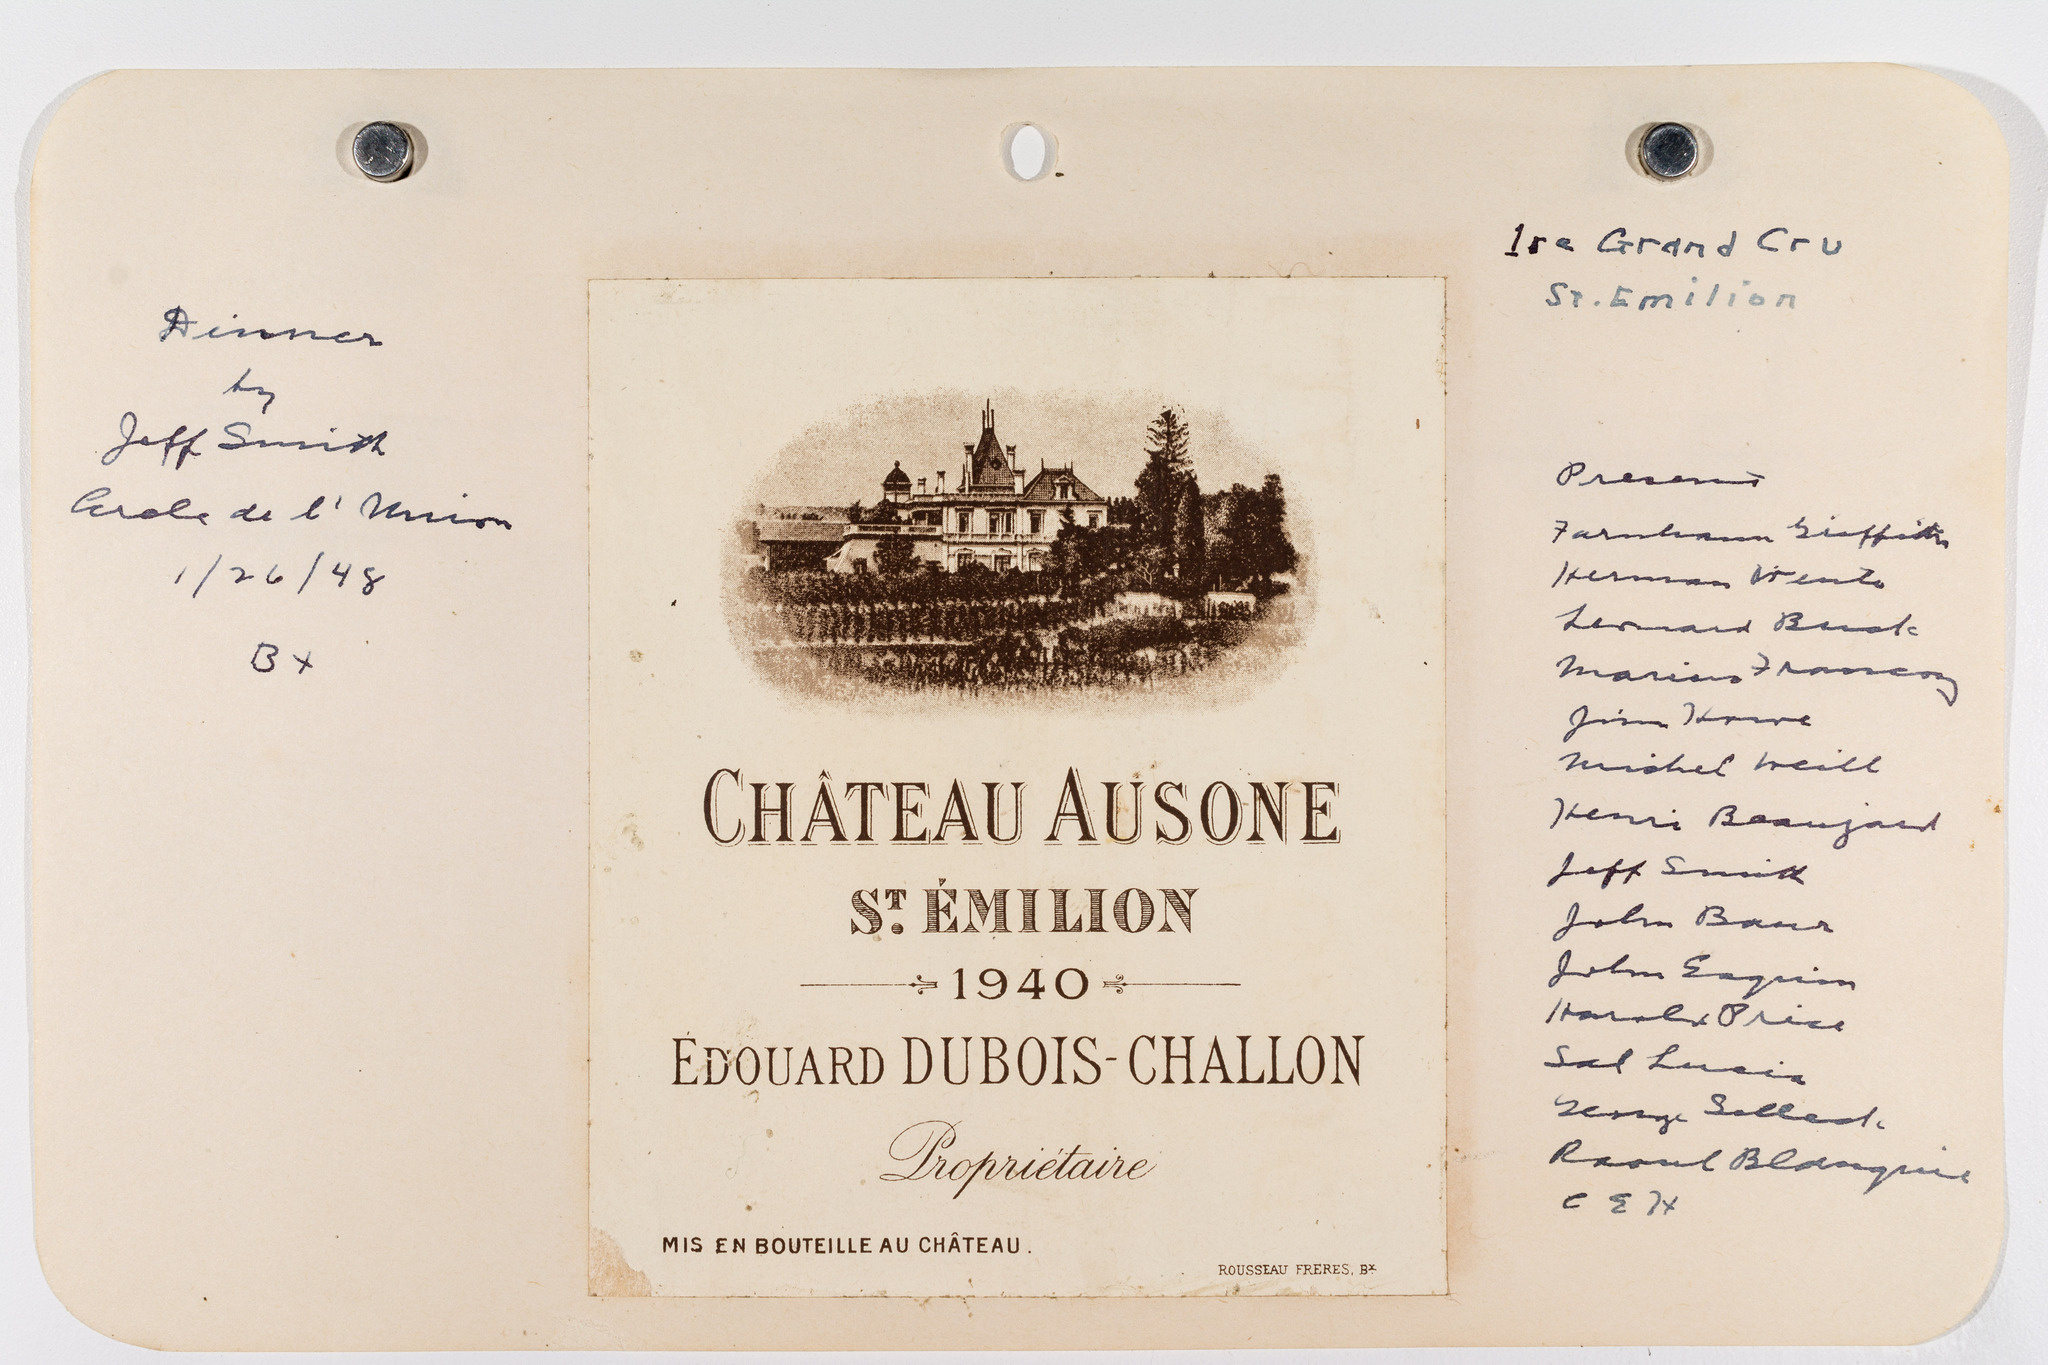 Dinner
by
Jeff Smith
Cercle de l' Union
1/26/48
Bx
CHÂTEAU AUSONE
ST. ÉMILION
1940
ÉDOUARD DUBOIS-CHALLON
Propriétaire
MIS EN BOUTEILLE AU CHÂTEAU.
ROUSSEAU FRERES, Bx
1re Grand Cru
St. Emilion
Present
Farnham Griffiths
Herman Wente
Leonard Buck
Marius Francoz
Jim Howe
Michel Weill
Henri Beaujard
Jeff Smith
John Baur
John Esquin
Harold Price
Sal Lucia
George Selleck
Raoul Blanquie
C E H